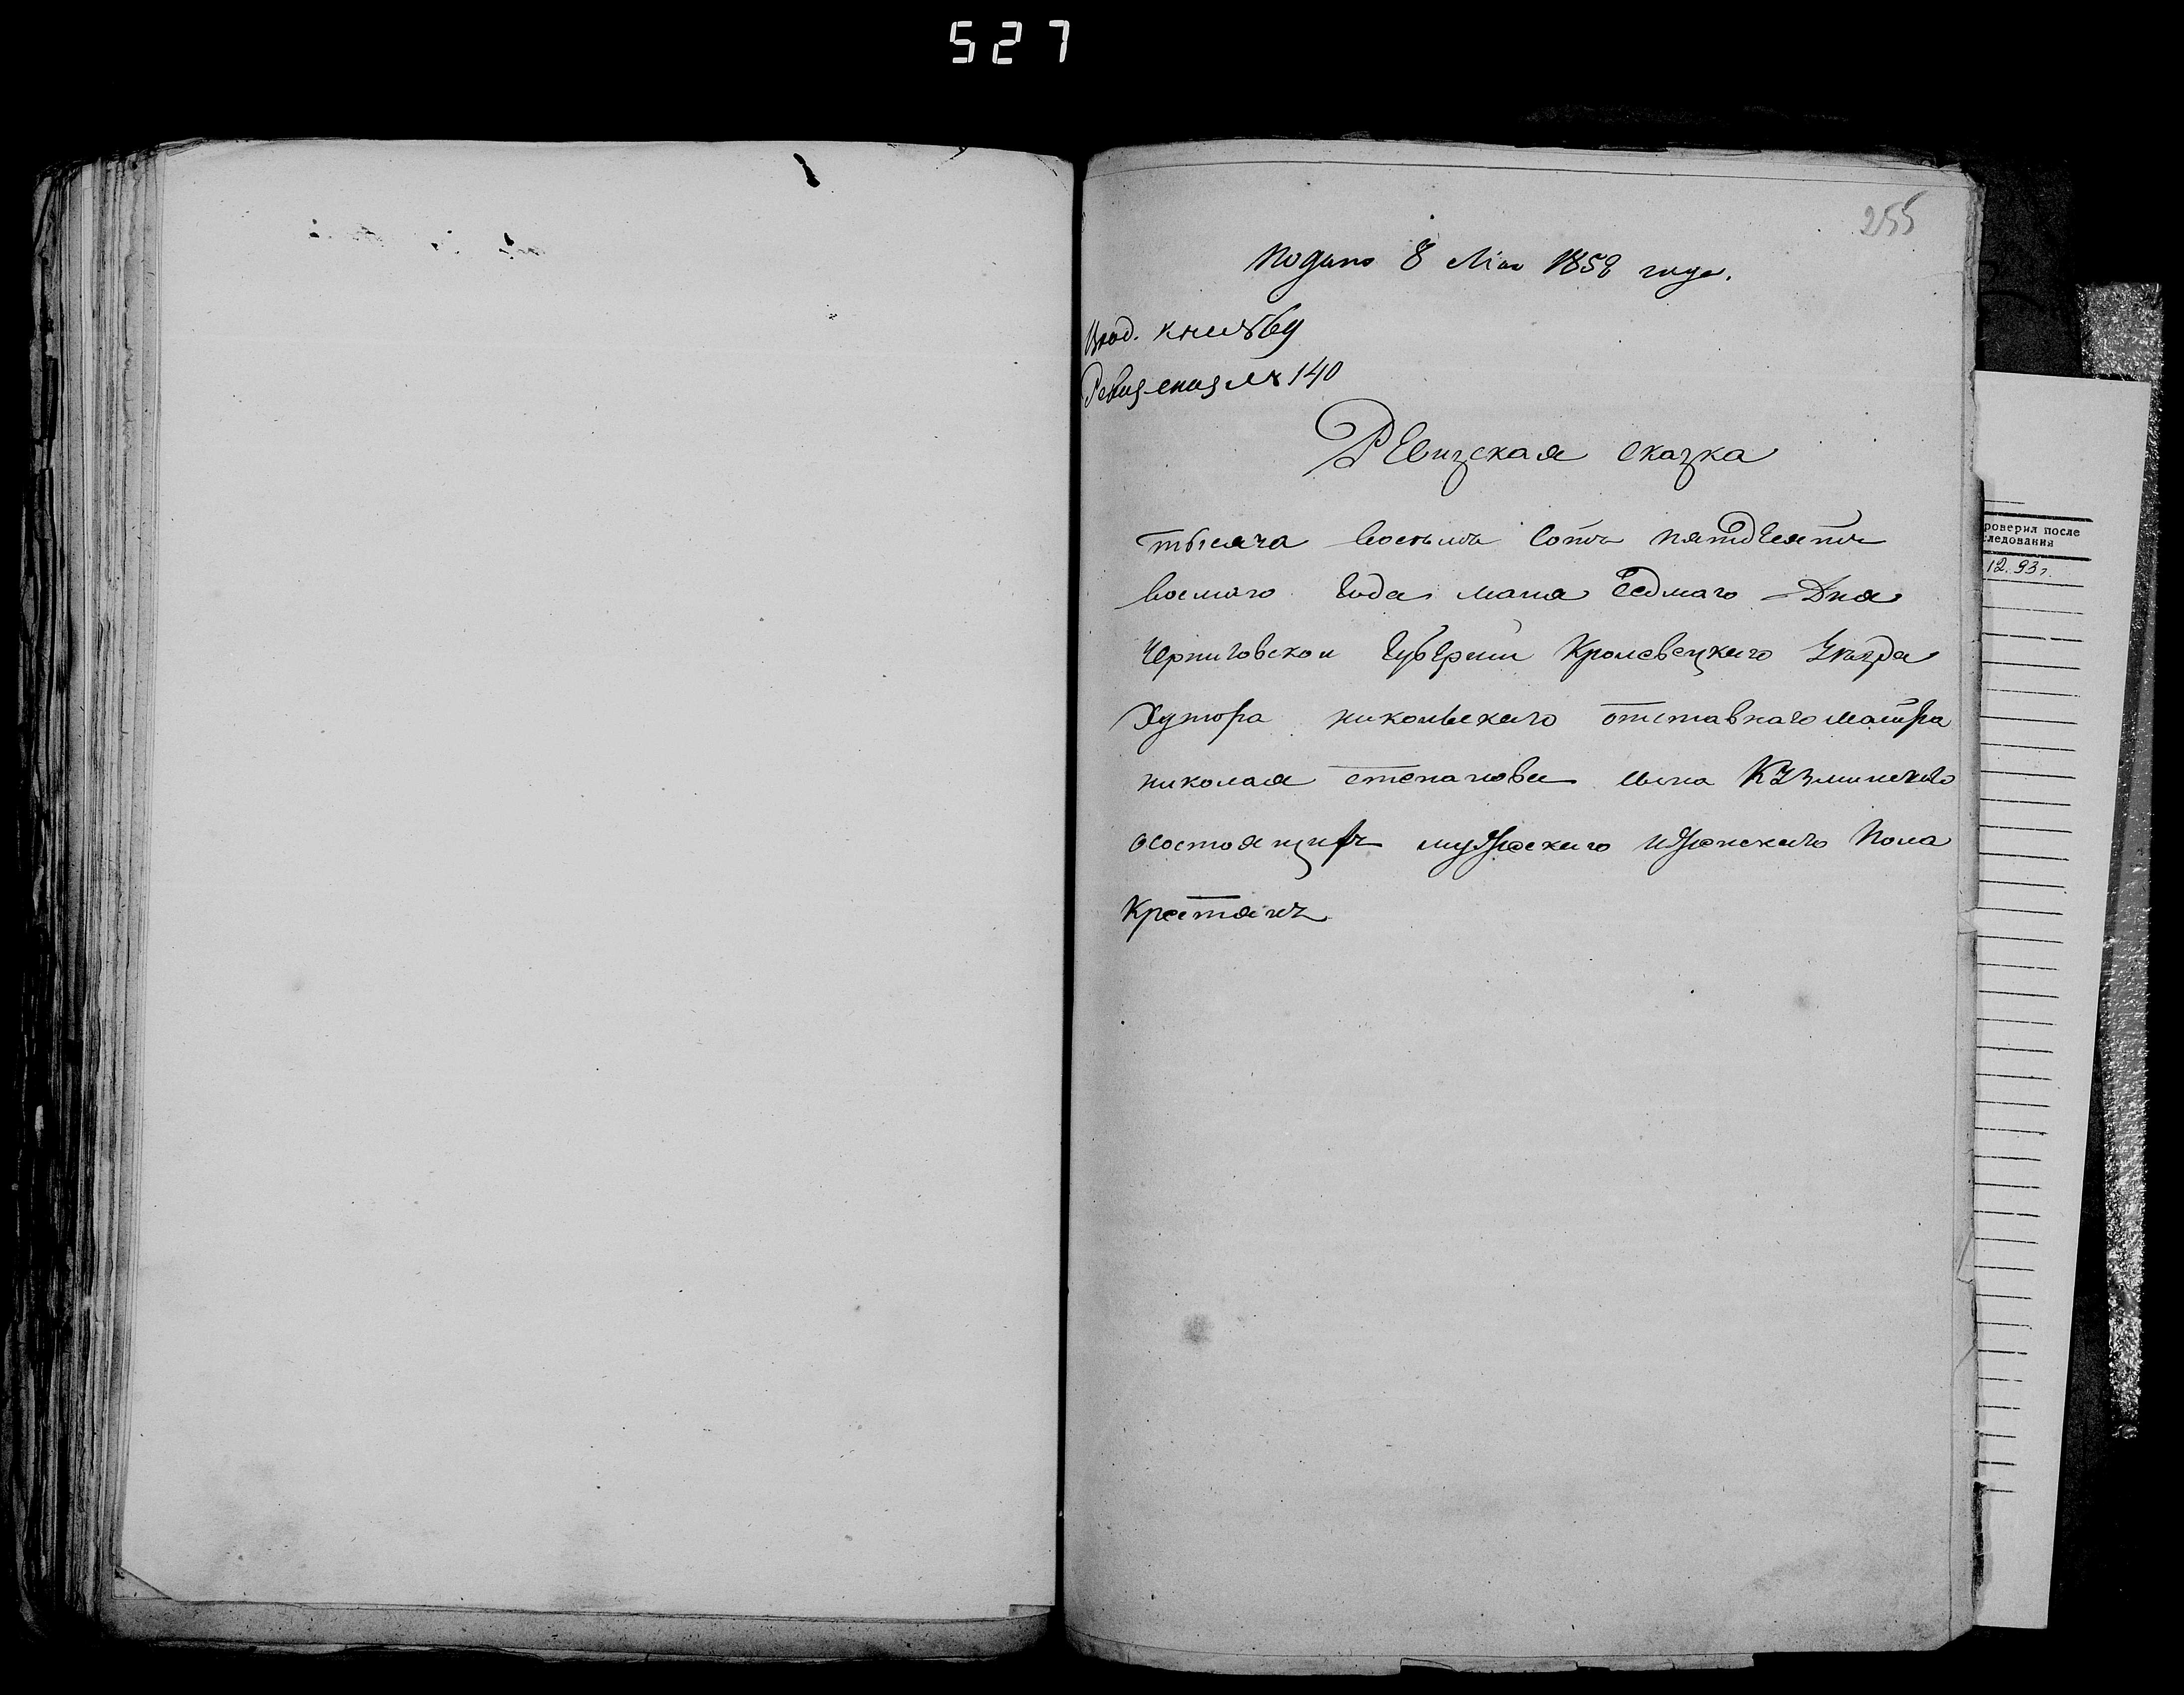 527
255
Подано 8 Мая 1858 года.
Вход. книг 569
Ревиз. сказ. № 140
РЕвизская сказка
тысяча восьмъ Сотъ пятдЕсятъ
восмаго Года мaия Седмаго Дня
Черниговскои ГубЕрнии Кролевецкаго Уезда
Хутора никольскаго отставнаго маиора
николая степанова сына Кузминскаго
осостоящихъ мужескаго иженскаго Пола
Крестянъ
роверил после
следования
12.93 г.